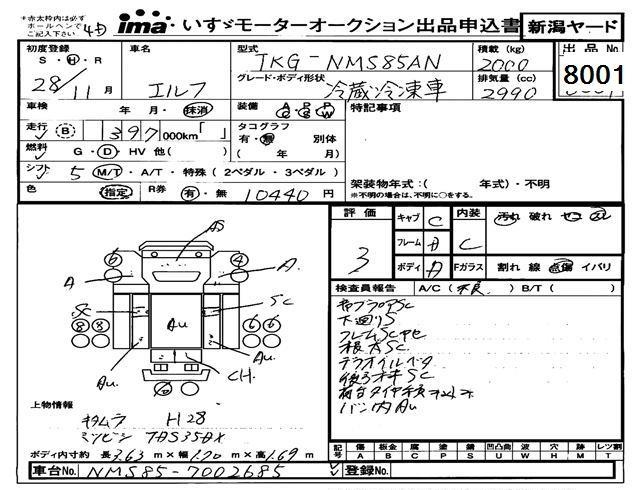 *赤太枠内は必ずボールペンでご記入下さい
ima・いすゞモーターオークション出品申込書
新潟ヤード
初度登録 S・H・R 28年 11月
車名 エルフ
型式 TKG-NMS85AN
グレード・ボディ形状 冷蔵冷凍車
積載(kg) 2000
排気量(cc) 2990
出品No. 8001
車検 年・月・抹消
装備 AC PS PW
特記事項
走行 B 397 000km「 」
タコグラフ 有・無 別体 ( 年 月)
燃料 G・D・HV 他( )
シフト 5 M/T・A/T・特殊(2ペダル・3ペダル)
架装物年式:( 年式)・不明
※不明の場合は、不明に○をする。
色 指定 R券 有・無 10440円
評価 3
キャブ C
フレーム A
ボディ A
内装 C 汚れ 破れ
Fガラス 割れ 線 点傷 イバリ
検査員報告 A/C(不良) B/T( )
AS
6 4
A A
SC
8 8 6 6
Au
Au. Au.
CH.
下廻りS
根太SC.
バン内Au
上物情報
キタムラ H28
TBS35BX
ボディ内寸約 長3.63m×幅1.70m×高1.69m
記号 傷 板金 腐 塗 錆 凹凸曲 波 穴 跡 レツ割
A B C P S U W H M T
車台No. NMS85-7002685
登録No.